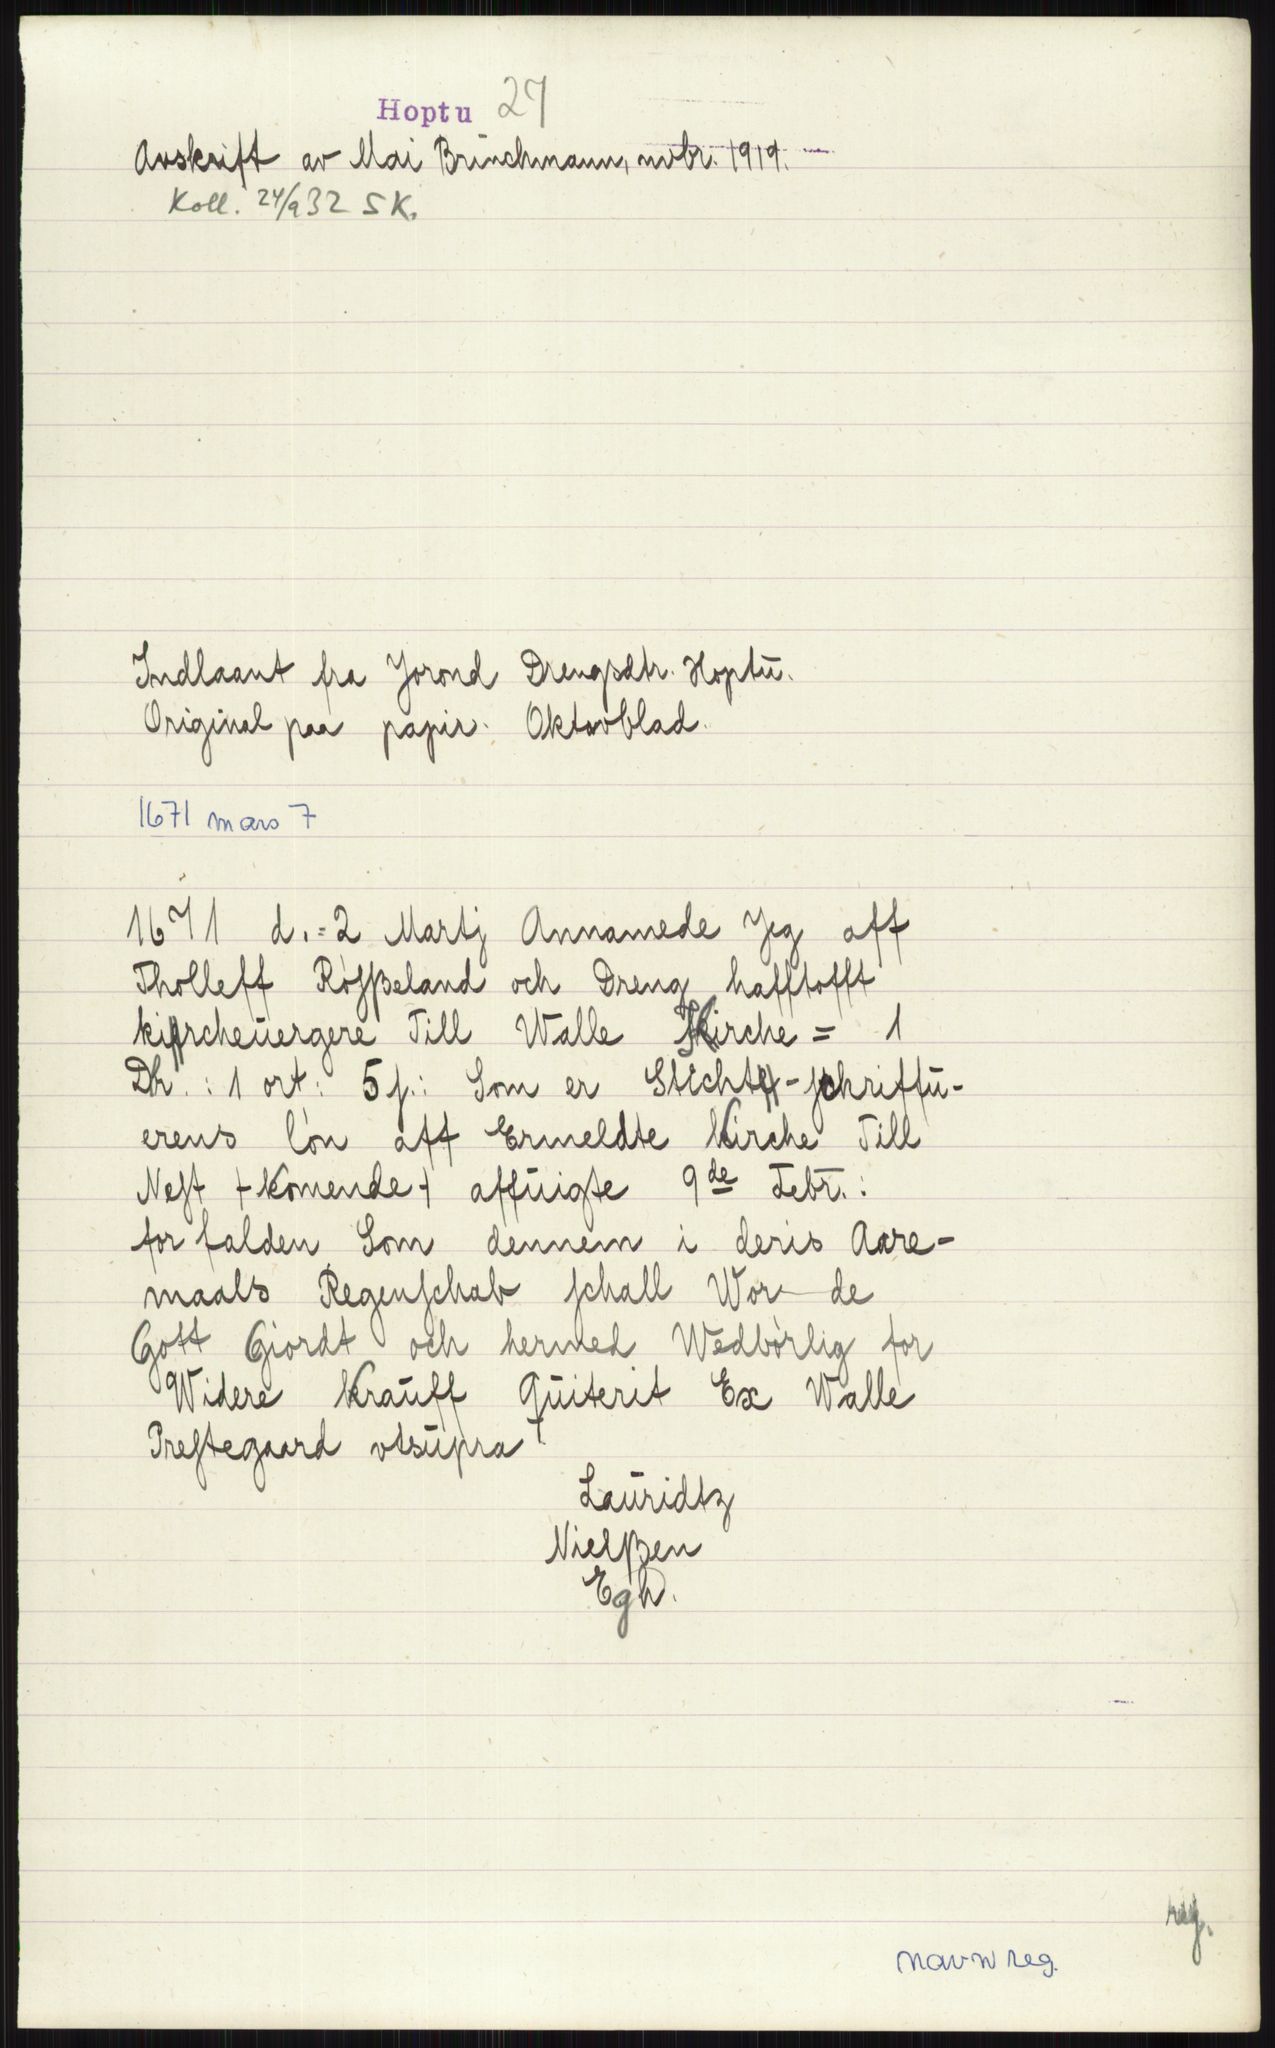 Hoptu 27
Avskrift av Mai Brünchmann, nvbr. 1919.
Koll. 24/9 32 SK.
Indlaant fra Jorond Drengsdtr. Hoptŭ.
Original paa papir. Oktavblad.
1671 mars 7
1671 d.=2 Martj Annamede Jeg aff
Tholleff Röſſeland och Dreng hafftofft
kircheŭergere Till Walle Kirche = 1
Dlr.: 1 ort: 5 ſ.: Som er Stichts-schriffŭ-
erens lön aff Ermeldte Kirche Till
Neſt + Komende + affŭigte 9de Febr.:
forfalden Som dennem i deris Aare-
maals Regenſchab ſchall Wor de
Gott Giordt och hermed Wedbörlig for
Widere Kraŭff Qŭiterit Ex Walle
Preſtegaard vtsŭpra
Laŭridtz
Nielſzen
Egh.
reg.
navnreg.